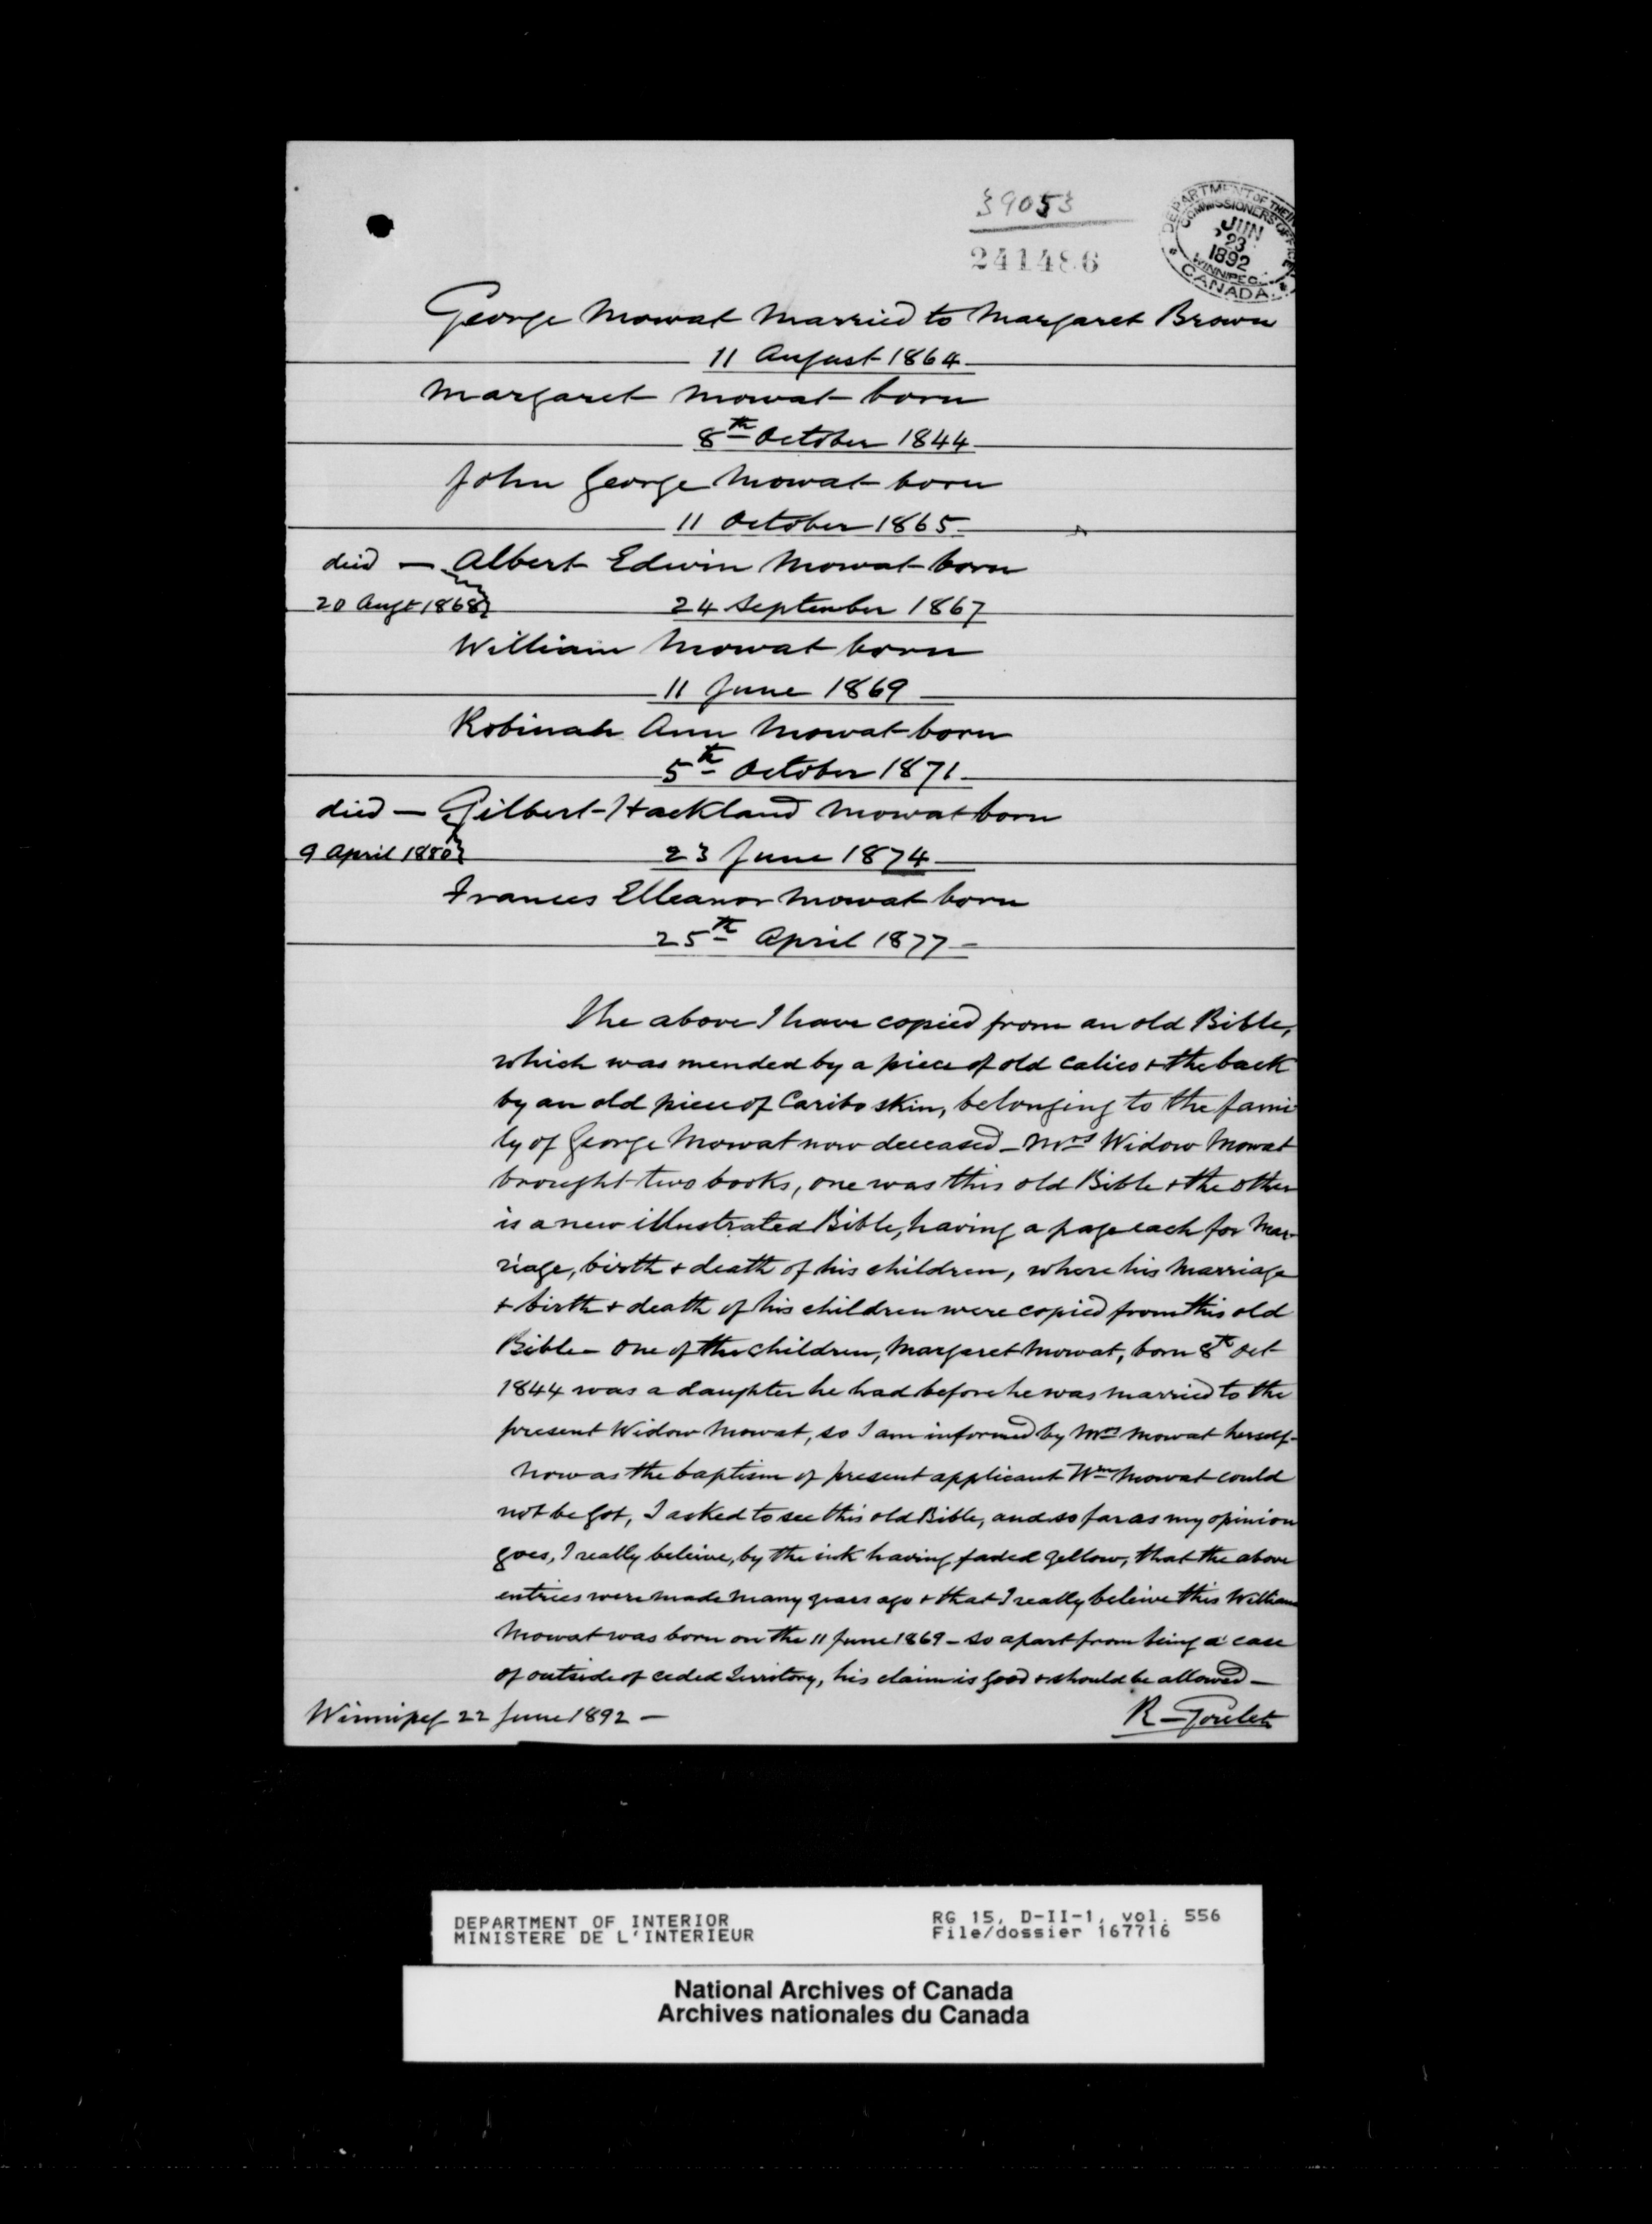 39053
241486
DEPARTMENT OF THE IN
COMMISSIONERS OFFICE
JUN
23
1892
WINNIPEG.
CANADA.
George Mowat Married to Margaret Brown
11 August 1864
Margaret Mowat born
8th October 1844
John George Mowat born
11 October 1865
died — Albert Edwin Mowat born
20 Augt 1868 24 September 1867
William Mowat born
11 June 1869
Robinah Ann Mowat born
5th October 1871
died — Gilbert Hackland Mowat born
9 April 1880 23 June 1874
Frances Elleanor Mowat born
25th April 1877 –
The above I have copied from an old Bible,
which was mended by a piece of old calico & the back
by an old piece of Caribo skin, belonging to the fami
ly of George Mowat now deceased – Mrs Widow Mowat
brought two books, one was this old Bible & the other
is a new illustrated Bible, having a page each for Mar-
riage, birth & death of his children, where his Marriage
& birth & death of his children were copied from this old
Bible – One of the children, Margaret Mowat, born 8th Oct
1844 was a daughter he had before he was married to the
present Widow Mowat, so I am informed by Mrs Mowat herself –
Now as the baptism of present applicant Wm Mowat could
not be got, I asked to see this old Bible, and so far as my opinion
goes, I really beleive, by the ink having faded yellow, that the above
entries were made many years ago & that I really beleive this William
Mowat was born on the 11 June 1869 – so apart from being a case
of outside of ceded Territory, his claim is good & should be allowed —
Winnipeg 22 June 1892 — R – Goulet
DEPARTMENT OF INTERIOR RG 15, D-II-1, vol. 556
MINISTERE DE L'INTERIEUR File/dossier 167716
National Archives of Canada
Archives nationales du Canada